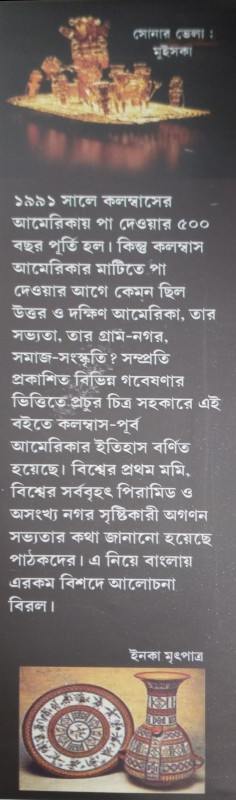 সোনার ভেলা :
মুইসকা
১৯৯১ সালে কলম্বাসের
আমেরিকায় পা দেওয়ার ৫০০
বছর পূর্তি হল। কিন্তু কলম্বাস
আমেরিকার মাটিতে পা
দেওয়ার আগে কেমন ছিল
উত্তর ও দক্ষিণ আমেরিকা, তার
সভ্যতা, তার গ্রাম-নগর,
সমাজ-সংস্কৃতি? সম্প্রতি
প্রকাশিত বিভিন্ন গবেষণার
ভিত্তিতে প্রচুর চিত্র সহকারে এই
বইতে কলম্বাস-পূর্ব
আমেরিকার ইতিহাস বর্ণিত
হয়েছে। বিশ্বের প্রথম মমি,
বিশ্বের সর্ববৃহৎ পিরামিড ও
অসংখ্য নগর সৃষ্টিকারী অগণন
সভ্যতার কথা জানানো হয়েছে
পাঠকদের। এ নিয়ে বাংলায়
এরকম বিশদে আলোচনা
বিরল।
ইনকা মৃৎপাত্র